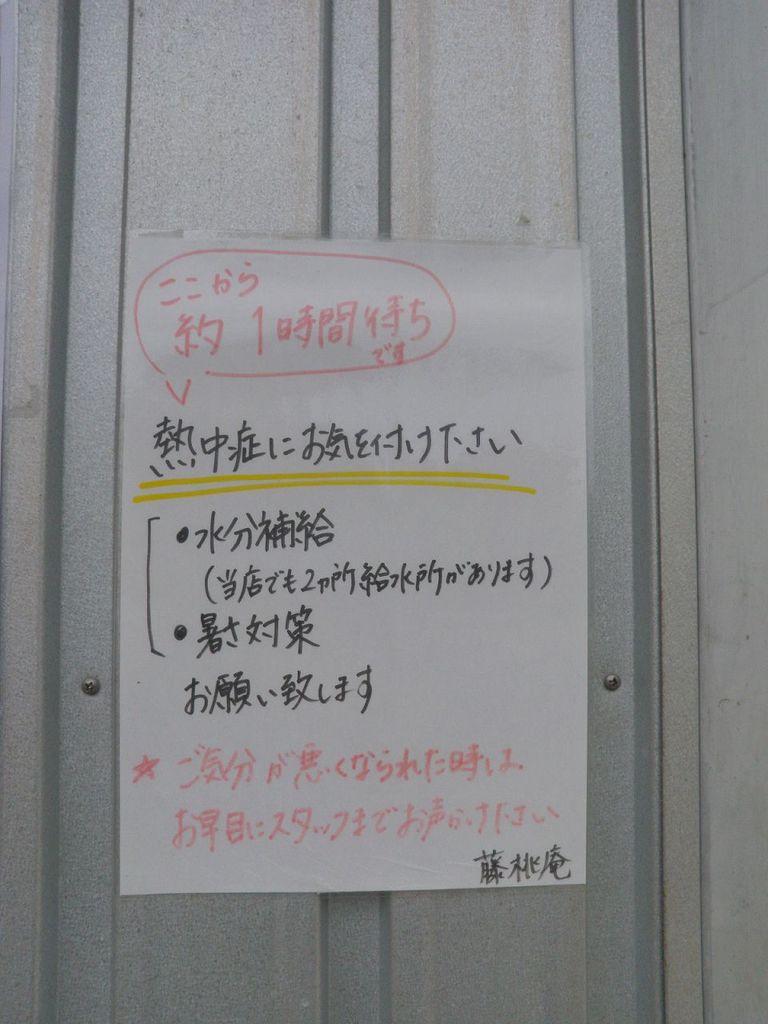 ここから
約1時間待ち
です
熱中症にお気を付け下さい
・水分補給
(当店でも2ヵ所給水所があります)
・暑さ対策
お願い致します
★ご気分が悪くなられた時は、
お早目にスタッフまでお声かけ下さい
藤桃庵